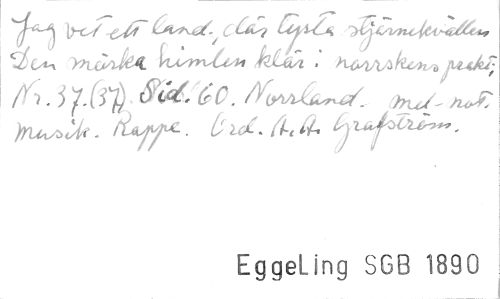 Jag vet ett land, där tysta stjärnekvällen
Den mörka himlen klär i norrskens prakt;
Nr. 37. (37) Sid. 60. Norrland. med not.
musik. Rappe. Ord. A. A. Grafström.
EggeLing SGB 1890